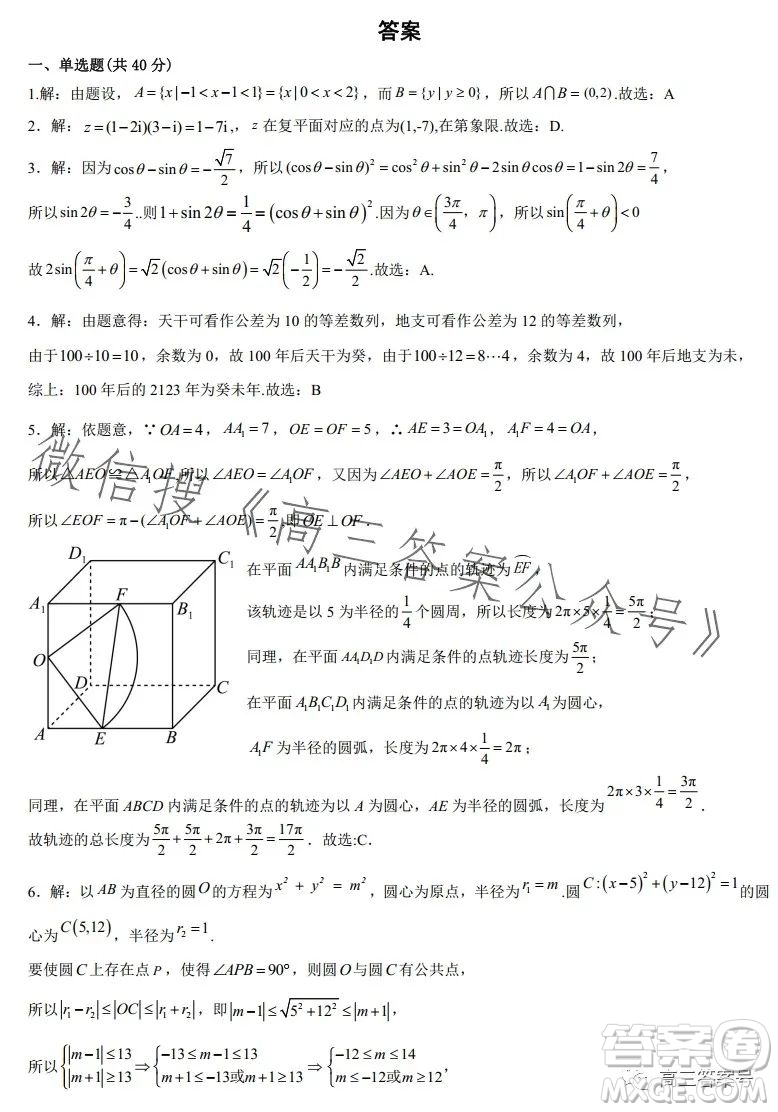 答案
一、单选题(共 40 分)
1.解：由题设，A={x|-1<x-1<1}={x|0<x<2}，而 B={y|y≥0}，所以 A⋂B=(0,2).故选：A
2．解：z=(1-2i)(3-i)=1-7i,，z 在复平面对应的点为(1,-7),在第象限.故选：D.
3．解：因为 cosθ-sinθ=-√7/2，所以 (cosθ-sinθ)²=cos²θ+sin²θ-2sinθcosθ=1-sin2θ=7/4，
所以 sin2θ=-3/4..则 1+sin2θ=1/4=(cosθ+sinθ)².因为 θ∈(3π/4，π)，所以 sin(π/4+θ)<0
故 2sin(π/4+θ)=√2(cosθ+sinθ)=√2(-1/2)=-√2/2.故选：A.
4．解：由题意得：天干可看作公差为 10 的等差数列，地支可看作公差为 12 的等差数列，
由于100÷10=10，余数为 0，故 100 年后天干为癸，由于100÷12=8⋯4，余数为 4，故 100 年后地支为未，
综上：100 年后的 2123 年为癸未年.故选：B
5．解：依题意，∵OA=4，AA₁=7，OE=OF=5，∴AE=3=OA₁，A₁F=4=OA，
所以△AEO≌△A₁OF,所以∠AEO=∠A₁OF，又因为∠AEO+∠AOE=π/2，所以∠A₁OF+∠AOE=π/2，
所以∠EOF=π-(∠A₁OF+∠AOE)=π/2,即 OE⊥OF．
D₁
C₁
A₁
F
B₁
O
D
C
A
E
B
在平面 AA₁B₁B 内满足条件的点的轨迹为 EF，
该轨迹是以 5 为半径的 1/4 个圆周，所以长度为 2π×5×1/4=5π/2；
同理，在平面 AA₁D₁D 内满足条件的点轨迹长度为 5π/2；
在平面 A₁B₁C₁D₁ 内满足条件的点的轨迹为以 A₁ 为圆心，
A₁F 为半径的圆弧，长度为 2π×4×1/4=2π；
同理，在平面 ABCD 内满足条件的点的轨迹为以 A 为圆心，AE 为半径的圆弧，长度为 2π×3×1/4=3π/2．
故轨迹的总长度为 5π/2+5π/2+2π+3π/2=17π/2．故选:C．
6．解：以 AB 为直径的圆 O 的方程为 x²+y²=m²，圆心为原点，半径为 r₁=m.圆 C:(x-5)²+(y-12)²=1 的圆
心为 C(5,12)，半径为 r₂=1.
要使圆 C 上存在点 P，使得∠APB=90°，则圆 O 与圆 C 有公共点，
所以|r₁-r₂|≤|OC|≤|r₁+r₂|，即|m-1|≤√(5²+12²)≤|m+1|，
所以{|m-1|≤13 |m+1|≥13⇒{-13≤m-1≤13 m+1≤-13或m+1≥13⇒{-12≤m≤14 m≤-12或m≥12，
微信搜《高三答案公众号》
答案卷
高三答案号